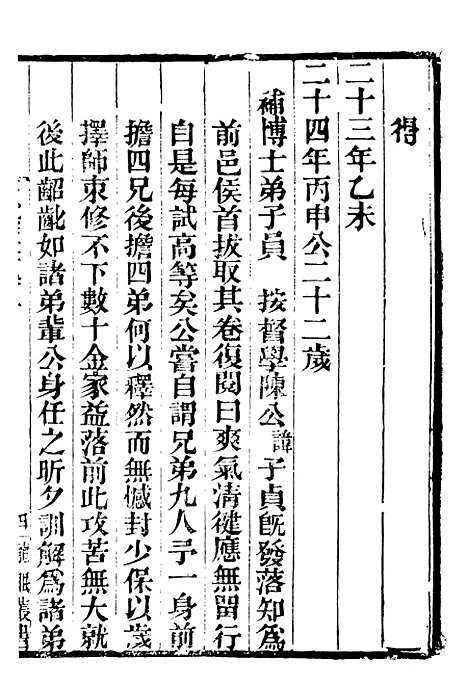 得
二十三年乙未
二十四年丙申公二十二歲
補博士弟子員　按督學陳公諱子貞旣發落知爲
前邑侯首拔取其卷復閱曰爽氣清健應無留行
自是每試高等矣公嘗自謂兄弟九人予一身前
擔四兄後擔四弟何以釋然而無憾封少保以㦮
擇師束修不下數十金家益落前此攻苦無大就
後此齠齔如諸弟輩公身任之昕夕訓解爲諸弟